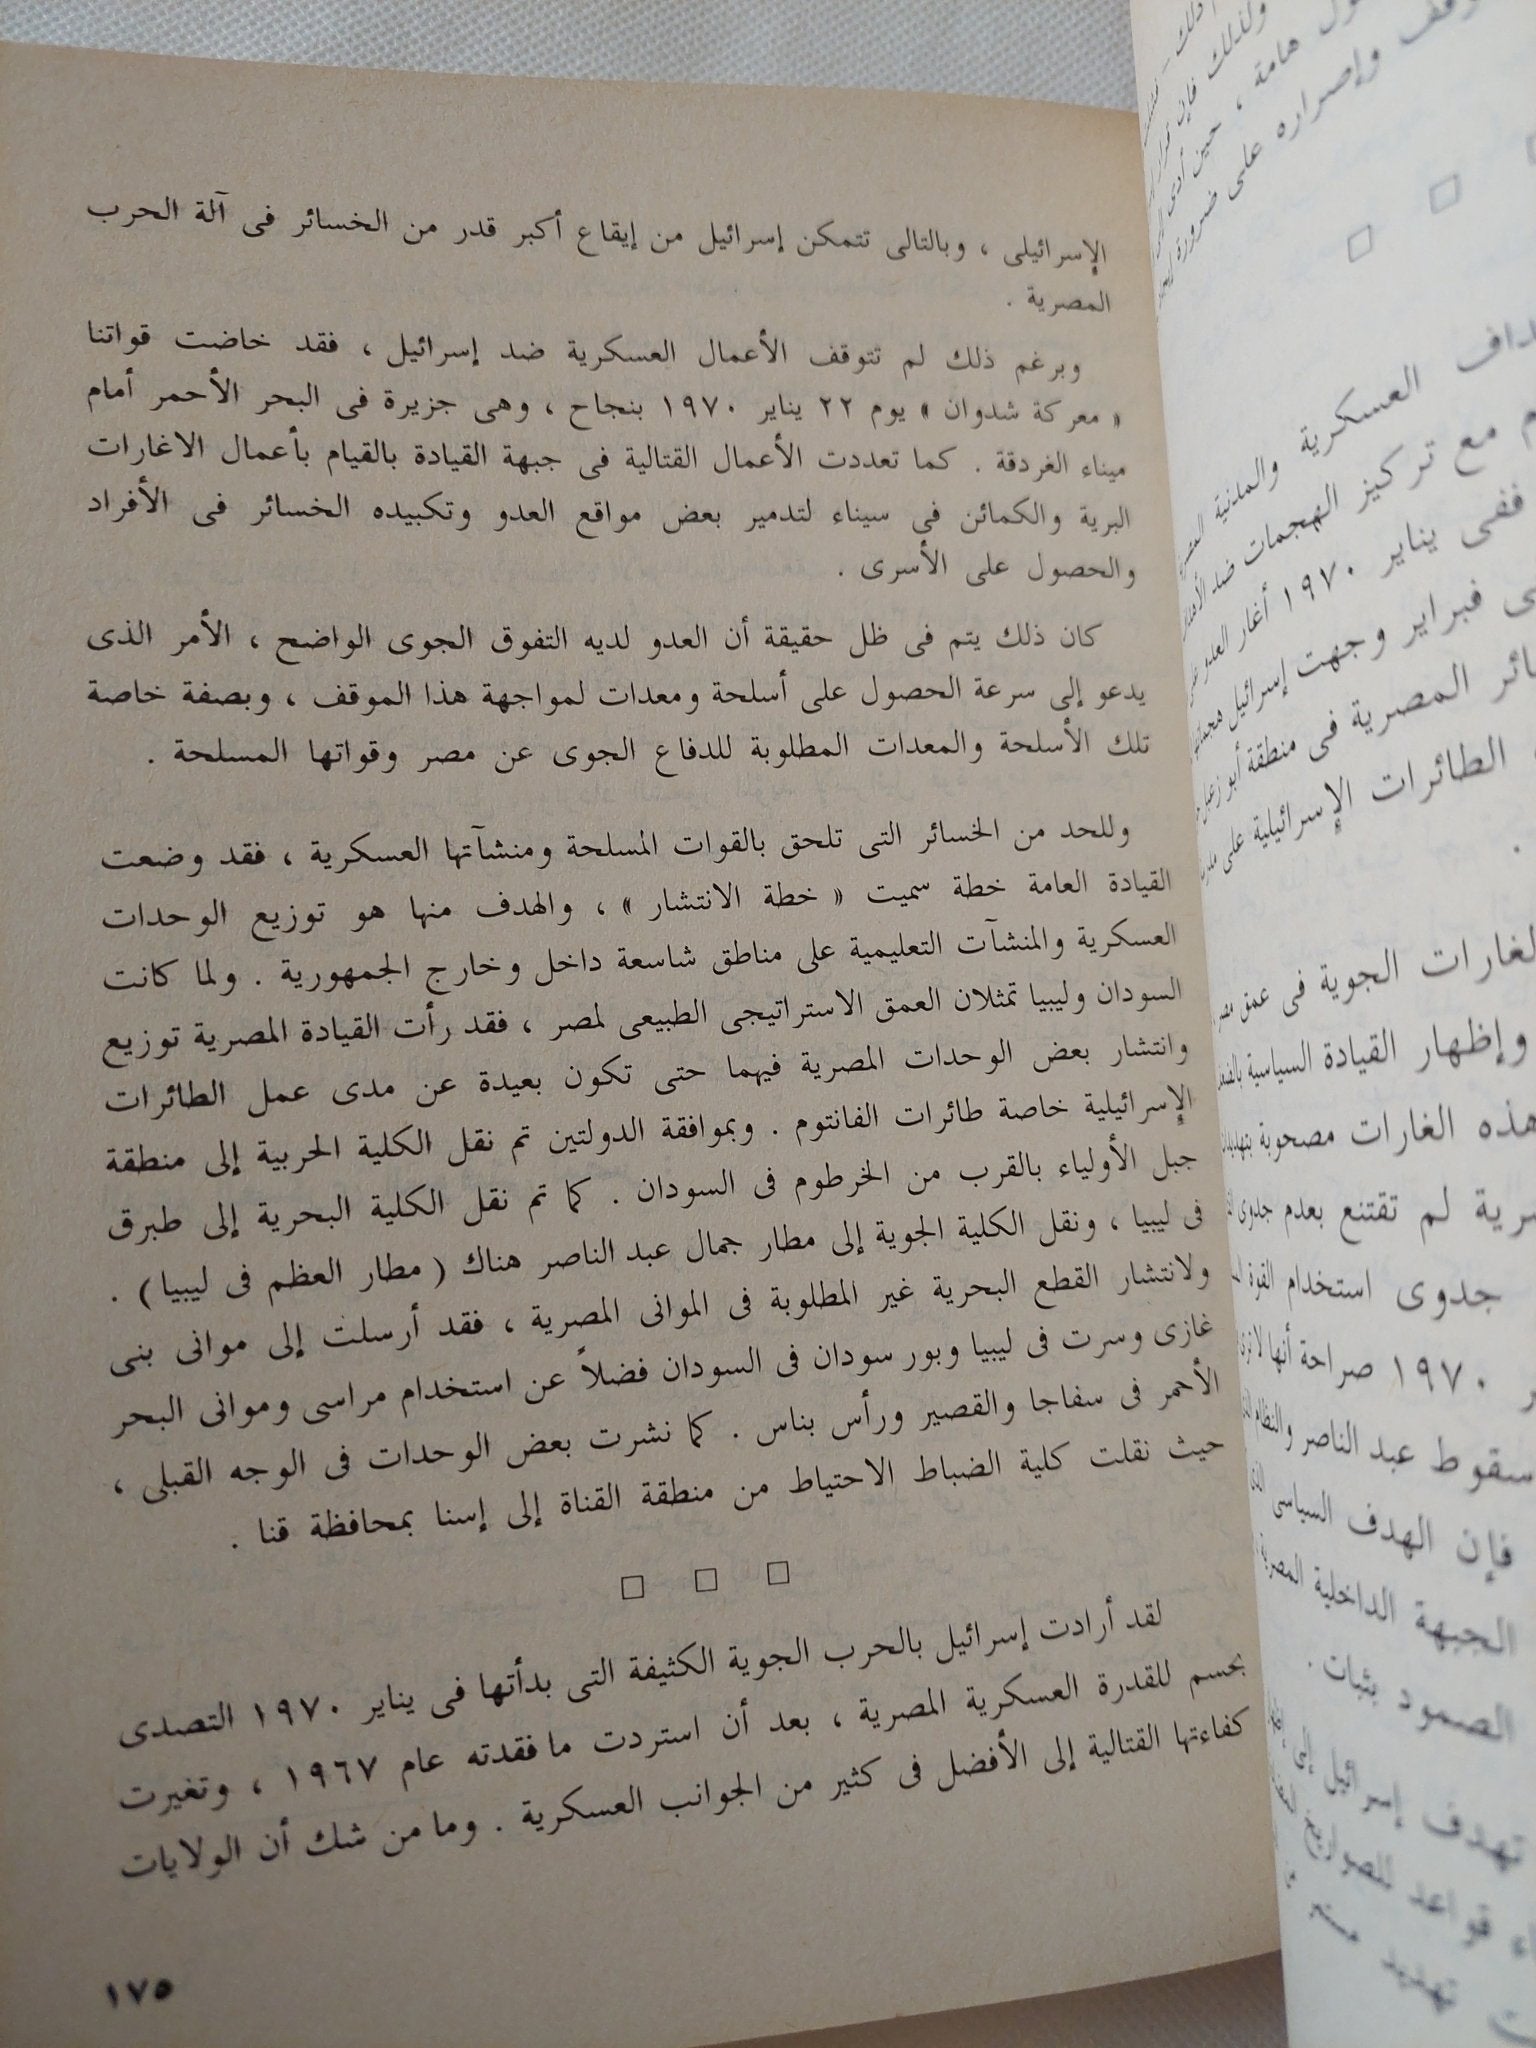 الإسرائيلى ، وبالتالى تتمكن إسرائيل من إيقاع أكبر قدر من الخسائر فى آلة الحرب
المصرية .
وبرغم ذلك لم تتوقف الأعمال العسكرية ضد إسرائيل ، فقد خاضت قواتنا
« معركة شدوان » يوم ٢٢ يناير ١٩٧٠ بنجاح ، وهى جزيرة فى البحر الأحمر أمام
ميناء الغردقة . كما تعددت الأعمال القتالية فى جبهة القيادة بالقيام بأعمال الاغارات
البرية والكمائن فى سيناء لتدمير بعض مواقع العدو وتكبيده الخسائر فى الأفراد
والحصول على الأسرى .
كان ذلك يتم فى ظل حقيقة أن العدو لديه التفوق الجوى الواضح ، الأمر الذى
يدعو إلى سرعة الحصول على أسلحة ومعدات لمواجهة هذا الموقف ، وبصفة خاصة
تلك الأسلحة والمعدات المطلوبة للدفاع الجوى عن مصر وقواتها المسلحة .
وللحد من الخسائر التى تلحق بالقوات المسلحة ومنشآتها العسكرية ، فقد وضعت
القيادة العامة خطة سميت « خطة الانتشار » ، والهدف منها هو توزيع الوحدات
العسكرية والمنشآت التعليمية على مناطق شاسعة داخل وخارج الجمهورية . ولما كانت
السودان وليبيا تمثلان العمق الاستراتيجى الطبيعى لمصر ، فقد رأت القيادة المصرية توزيع
وانتشار بعض الوحدات المصرية فيهما حتى تكون بعيدة عن مدى عمل الطائرات
الإسرائيلية خاصة طائرات الفانتوم . وبموافقة الدولتين تم نقل الكلية الحربية إلى منطقة
جبل الأولياء بالقرب من الخرطوم فى السودان . كما تم نقل الكلية البحرية إلى طبرق
فى ليبيا ، ونقل الكلية الجوية إلى مطار جمال عبد الناصر هناك ( مطار العظم فى ليبيا ) .
ولانتشار القطع البحرية غير المطلوبة فى الموانى المصرية ، فقد أرسلت إلى موانى بنى
غازى وسرت فى ليبيا وبور سودان فى السودان فضلاً عن استخدام مراسى وموانى البحر
الأحمر فى سفاجا والقصير ورأس بناس . كما نشرت بعض الوحدات فى الوجه القبلى ،
حيث نقلت كلية الضباط الاحتياط من منطقة القناة إلى إسنا بمحافظة قنا .
□ □ □
لقد أرادت إسرائيل بالحرب الجوية الكثيفة التى بدأتها فى يناير ١٩٧٠ التصدى
بحسم للقدرة العسكرية المصرية ، بعد أن استردت ما فقدته عام ١٩٦٧ ، وتغيرت
كفاءتها القتالية إلى الأفضل فى كثير من الجوانب العسكرية . وما من شك أن الولايات
١٧٥
وإصراره على ضرورة
□ □
العسكرية والمدنية
مع تركيز الهجمات ضد
ففى يناير ١٩٧٠ أغار العدو
فبراير وجهت إسرائيل
المصرية فى منطقة أبو زعبل
الطائرات الإسرائيلية على
الغارات الجوية فى عمق مصر
وإظهار القيادة السياسية
هذه الغارات مصحوبة
لم تقتنع بعدم جدوى
جدوى استخدام القوة
١٩٧٠ صراحة أنها
سقوط عبد الناصر والنظام
فإن الهدف السياسى
الجبهة الداخلية المصرية
الصمود بثبات .
تهدف إسرائيل إلى
قواعد للصواريخ